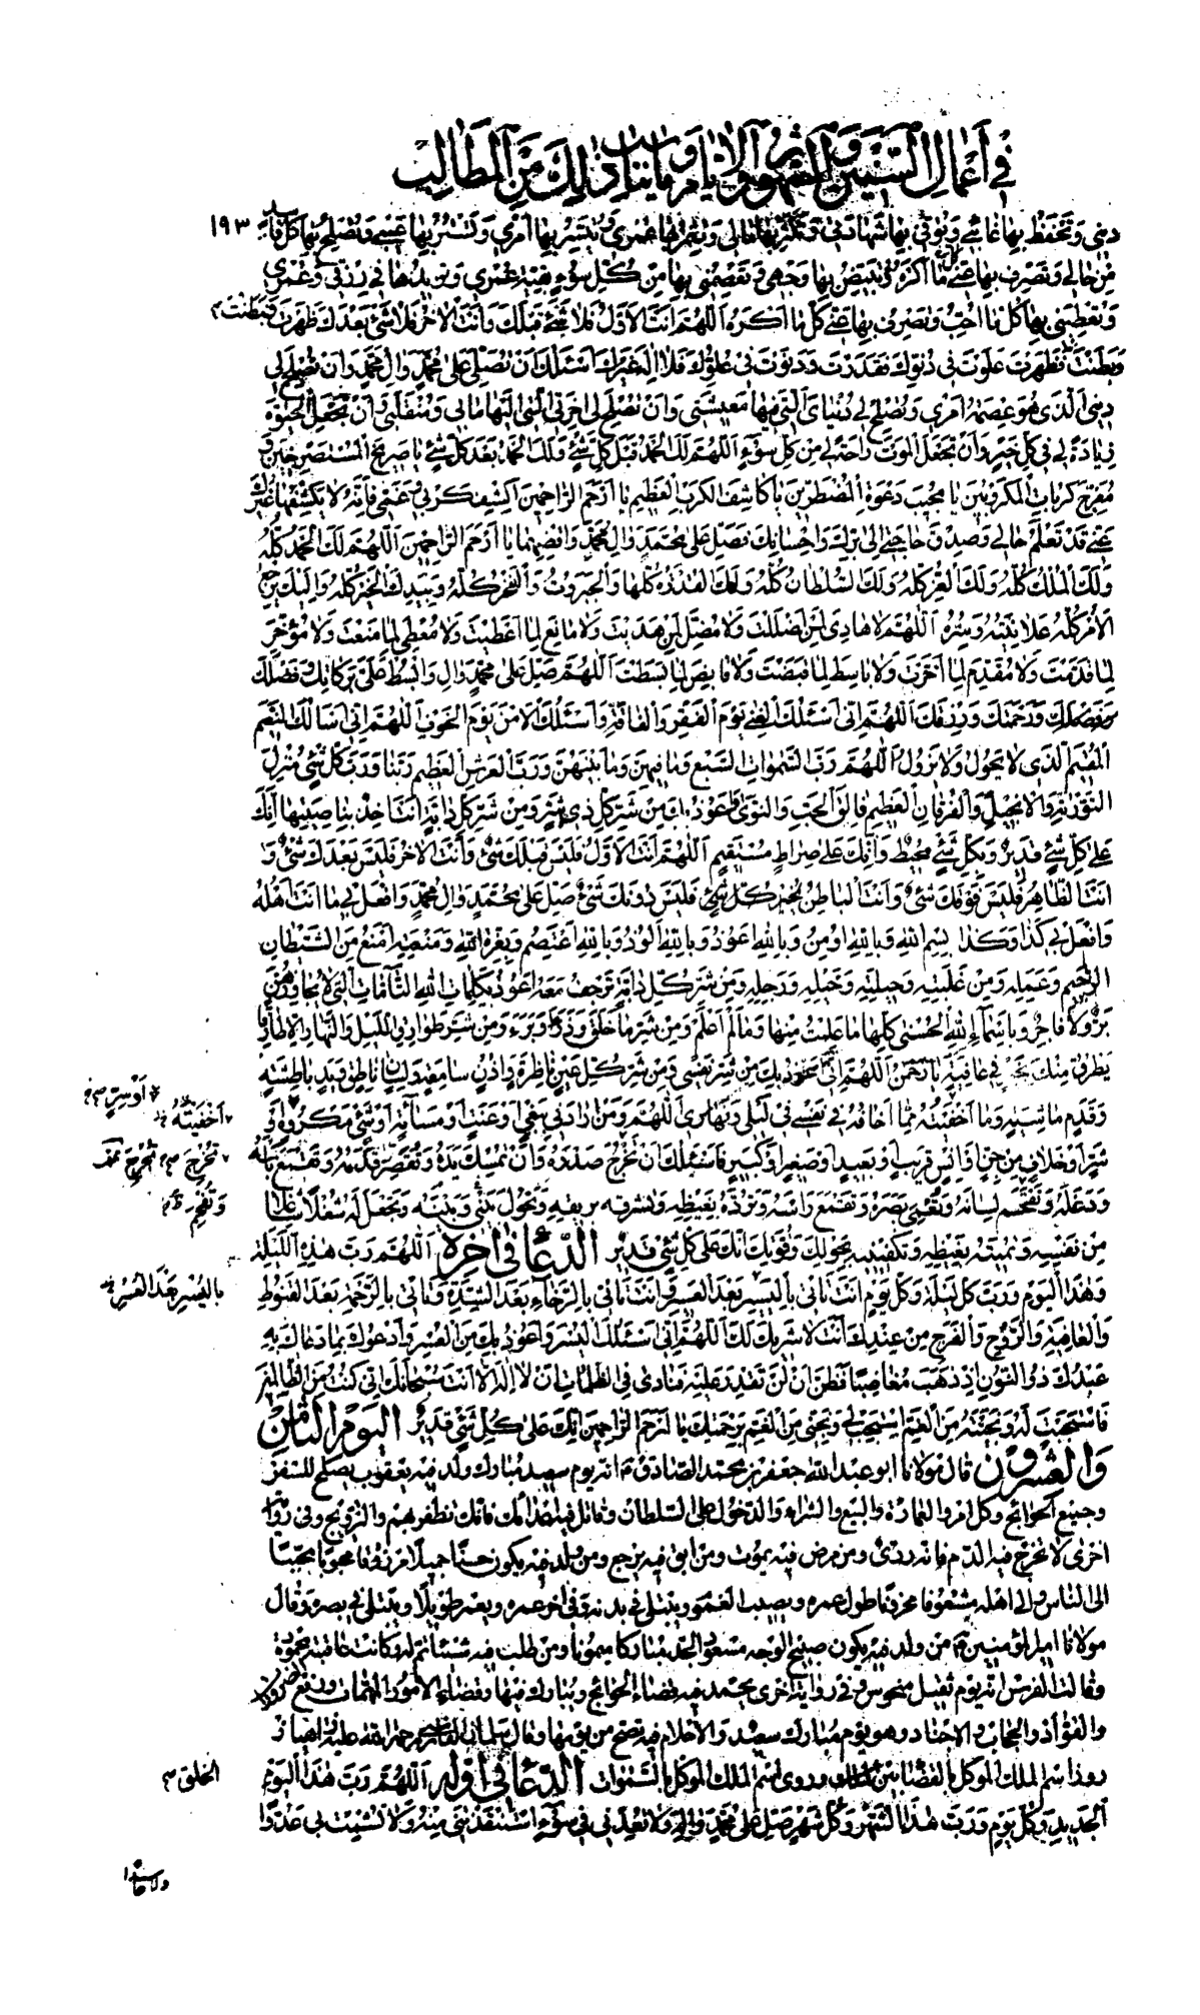 في أعمال السنين والشهور والأيام وما يناسب ذلك من المطالب
١٩٣
ديني وتحفظ بها غائبي وتوفي بها شهادتي وتكثر بها مالي وتثمر بها عمري وتيسر بها أمري وتستر بها عيبي وتصلح بها كل فاسد
من حالي وتصرف بها عني كلما أكره وتبيض بها وجهي وتعصمني بها من كل سوء بقية عمري وتزيد بها في رزقي وعمري
وتعطيني بها كل ما أحب وتصرف بها عني كل ما أكره اللهم أنت الأول فلا شيء قبلك وأنت الآخر فلا شيء بعدك ظهرت فبطنت
وبطنت فظهرت علوت في دنوك فقدرت ودنوت في علوك فلا إله غيرك أسئلك أن تصلي على محمد وال محمد وان تصلح لي
ديني الذي هو عصمة أمري وتصلح لي دنياي التي فيها معيشتي وان تصلح لي اخرتي التي اليها مالي ومنقلبي وأن تجعل الحيوة
زيادة لي في كل خير وأن تجعل الموت راحة لي من كل سوء اللهم لك الحمد قبل كل شيء ولك الحمد بعد كل شيء يا صريخ المستصرخين و
مفرج كربات المكروبين يا مجيب دعوة المضطرين يا كاشف الكرب العظيم يا أرحم الراحمين اكشف كربي وغمي فانه لا يكشفها غيرك
عني قد تعلم حالي وصدق حاجتي إلى برك وإحسانك فصل على محمد وال محمد واقضها يا أرحم الراحمين اللهم لك الحمد كله
ولك الملك كله ولك العز كله ولك السلطان كله ولك القدرة كلها والجبروت والفخر كله وبيدك الخير كله وإليك يرجع
الأمر كله علانيته وسره اللهم لا هادي لمن أضللت ولا مضل لمن هديت ولا مانع لما أعطيت ولا معطي لما منعت ولا مؤخر
لما قدمت ولا مقدم لما أخرت ولا باسط لما قبضت ولا قابض لما بسطت اللهم صل على محمد وال وابسط علي بركاتك وفضلك
ورحمتك ورزقك اللهم إني أسئلك الغنى يوم الفقر والفاقة وأسئلك الأمن يوم الخوف اللهم إني أسألك النعيم
المقيم الذي لا يحول ولا يزول اللهم رب السموات السبع وما فيهن وما بينهن ورب العرش العظيم ربنا ورب كل شيء منزل
التورية والانجيل والفرقان العظيم فالق الحب والنوى أعوذ بك من شر كل ذي شر ومن شر كل دابة أنت آخذ بناصيتها إنك
على كل شيء قدير وبكل شيء محيط وإنك على صراط مستقيم اللهم أنت الأول فليس قبلك شيء وأنت الآخر فليس بعدك شيء و
أنت الظاهر فليس فوقك شيء وأنت الباطن فليس دونك شيء صل على محمد وال محمد وافعل بي ما أنت أهله
وافعل بي كذا وكذا بسم الله وبالله أومن وبالله أعوذ وبالله ألوذ وبالله أعتصم وبعزة الله ومنعته أمتنع من الشيطان
الرجيم وعمله ومن غلبته وحيلته وخيله ورجله ومن شر كل دابة ترجف معه أعوذ بكلمات الله التامات التي لا يجاوزهن
بر ولا فاجر وبأسماء الله الحسنى كلها ما علمت منها وما لم أعلم ومن شر ما خلق وذرء وبرء ومن شر طوارق الليل والنهار إلا طارقا
يطرق منك بخير في عافية يا رحمن اللهم إني أعوذ بك من شر نفسي ومن شر كل عين ناظرة وأذن سامعة ولسان ناطق ويد باطشة
وقدم ماشية وما أخفيته مما أخافه في نفسي في ليلي ونهاري اللهم ومن أرادني ببغي أو عنت أو مساءة أو شيء مكروه
أو سر
أخفيته
شر أو خلاف من جن أو إنس قريب أو بعيد أو صغير أو كبير فاسئلك أن تخرج صدره وأن تمسك يده وتقصر قدمه وتقمع بأسه
تحرج م تخرج
ودغله وتفحم لسانه وتعمي بصره وتقمع رأسه وترده بغيظه وتشرقه بريقه وتحول بيني وبينه وتجعل له شغلا شاغلا
وتفحم
من نفسه وتميته بغيظه وتكفينيه بحولك وقوتك إنك على كل شيء قدير الدعاء في آخره اللهم رب هذه الليلة
وهذا اليوم ورب كل ليلة وكل يوم أنت تأتي باليسر بعد العسر أنت تأتي بالرخاء بعد الشدة وتأتي بالرحمة بعد القنوط
باليسر بعد العسر
والعافية والروح والفرج من عندك أنت لا شريك لك اللهم إني أسئلك اليسر وأعوذ بك من العسر وأدعوك بما دعاك به
عبدك ذو النون إذ ذهب مغاضبا فظن أن لن تقدر عليه فنادى في الظلمات أن لا إله إلا أنت سبحانك إني كنت من الظالمين
فاستجبت له ونجيته من الغم استجب لي ونجني من الغم برحمتك يا أرحم الراحمين إنك على كل شيء قدير اليوم الثامن
والعشرون قال مولانا ابو عبد الله جعفر بن محمد الصادق انه يوم سعيد مبارك ولد فيه يعقوب يصلح للسفر
وجميع الحوائج وكل امر والعمارة والبيع والشراء والدخول على السلطان وقاتل فيه أعدائك فانك تظفر بهم والتزويج وفي رواية
اخرى لا تخرج فيه الدم فانه ردى ومن مرض فيه يموت ومن ابق فيه يرجع ومن ولد فيه يكون حسنا جميلا مرزوقا محبوبا محببا
الى الناس والى اهله مشعوفا محزونا طول عمره ويصيبه الغموم ويبتلى في بدنه وفي اخر عمره ويعمر طويلا ويبتلى في بصره وقال
مولانا امير المؤمنين من ولد فيه يكون صبيح الوجه مسعود الجد مباركا ميمونا ومن طلب فيه شيئا تم له وكانت عاقبته محمودة
وقالت الفرس انه يوم ثقيل منحوس وفي رواية اخرى يحمد فيه قضاء الحوائج ويبارك فيها وقضاء الامور المهمات ودفع الضرورات
والقواد والحجاب والاجناد وهو يوم مبارك سعيد والاحلام فيه تصح من يومها وقال سلمان الفارسي رحمة الله عليه
روز اسم الملك الموكل بالقضا بين الخلق وروى اسم الملك الموكل بالسموات الدعاء في أوله اللهم رب هذا اليوم
الخلق م
الجديد وكل يوم ورب هذا الشهر وكل شهر صل على محمد واله ولا تعدني في سوء استنقذتني منه ولا تشمت بي عدوا
ولا حاسدا